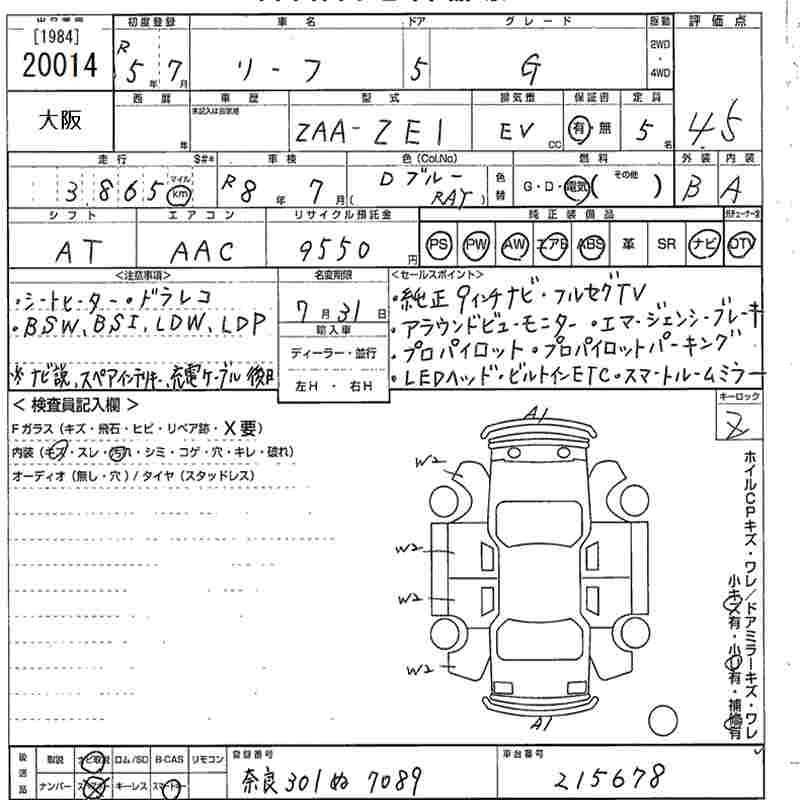 [1984]
20014
初度登録
R 5年 7月
車名
リーフ
ドア
5
グレード
G
駆動
2WD
・
4WD
評価点
4.5
大阪
西暦
年
車歴
未記入は自家用
型式
ZAA-ZE1
排気量
EV CC
保証書
有・無
定員
5名
走行 S#*
3865 マイル km
車検
R8年 7月
色(Col.No)
Dブルー
( RAY )
色替
燃料
G・D・電気( その他 )
外装
B
内装
A
シフト
AT
エアコン
AAC
リサイクル預託金
9550円
純正装備品
PS PW AW エアB ABS 革 SR ナビ TV
<注意事項>
・シートヒーター・ドラレコ
・BSW、BSI、LDW、LDP
※ナビ説、スペアインテリキー、充電ケーブル後日
名変期限
7月31日
輸入車
ディーラー・並行
左H ・ 右H
<セールスポイント>
・純正9インチナビ・フルセグTV
・アラウンドビューモニター・エマージェンシーブレーキ
・プロパイロット・プロパイロットパーキング
・LEDヘッド・ビルトインETC・スマートルームミラー
<検査員記入欄>
Fガラス(キズ・飛石・ヒビ・リペア跡・X要)
内装(キズ・スレ・汚れ・シミ・コゲ・穴・キレ・破れ)
オーディオ(無し・穴)/タイヤ(スタッドレス)
キーロック
Z
A1
W2
W2
W2
W2
A1
ホイルCPキズ・ワレ/ドアミラーキズ・ワレ
小キズ有・小U有・補修有
後送品
取説 ナビ取説 ロム/SD B-CAS リモコン
ナンバー スペアキー キーレス スマートキー
登録番号
奈良 301 ぬ 7089
車台番号
215678